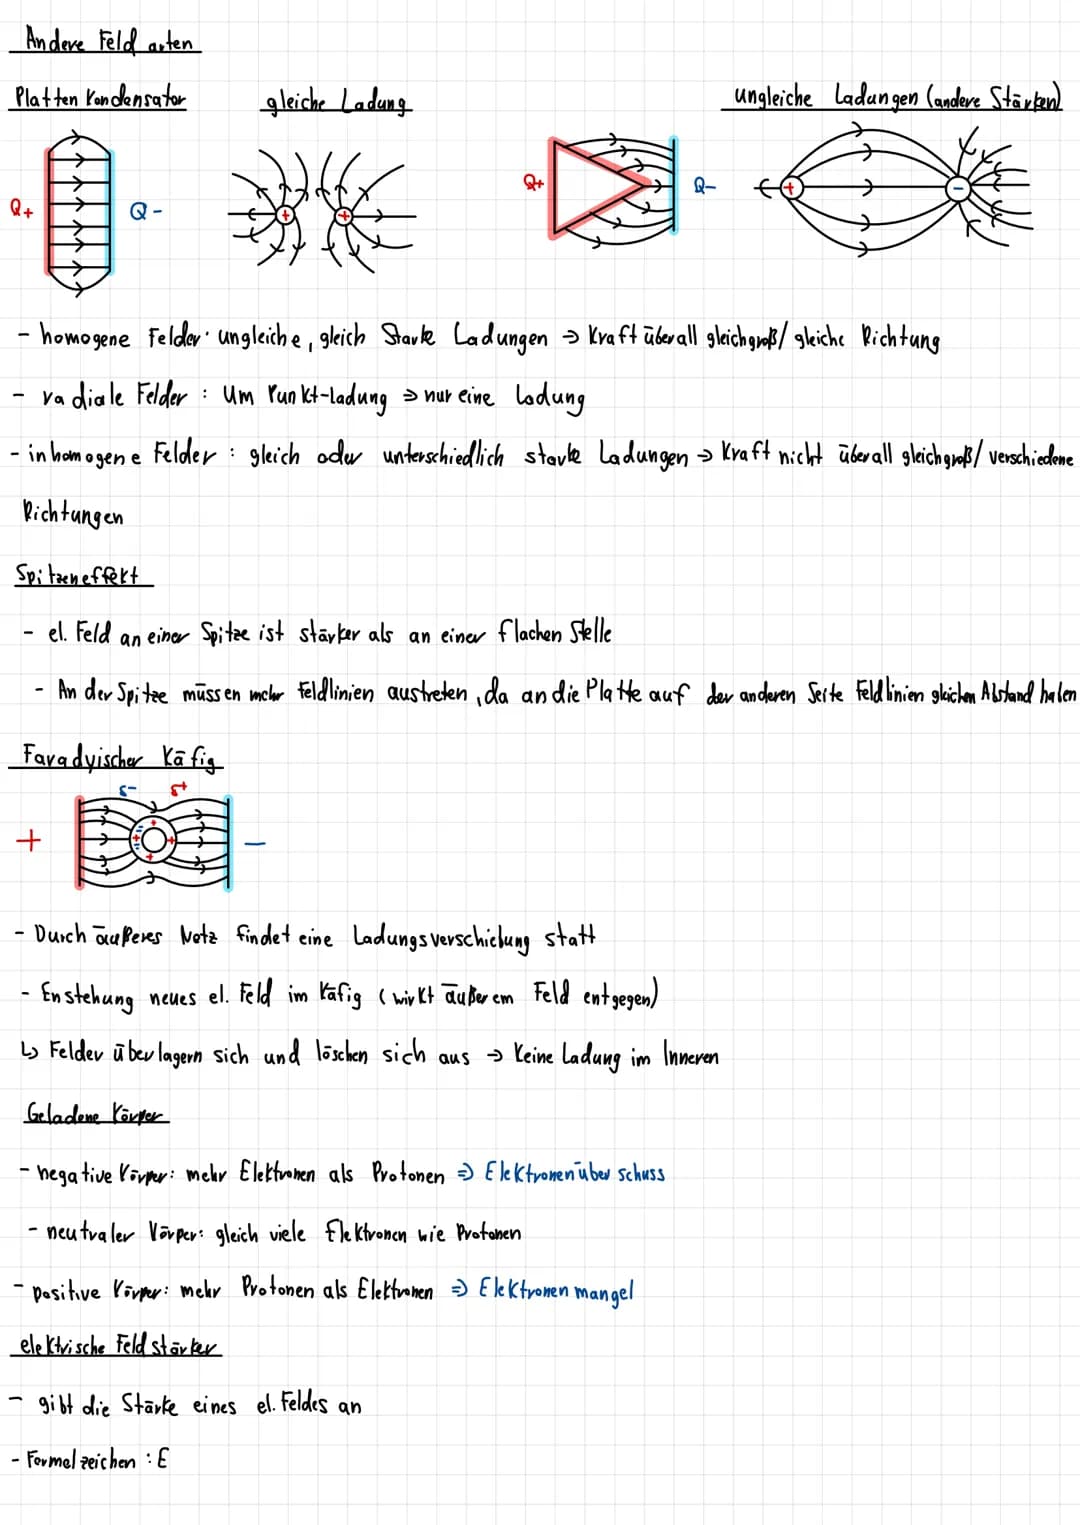 Andere Feld arten
Platten Kondensator gleiche Ladung ungleiche Ladungen (andere Stärken)
Q+ Q- + + Q+ Q- + -
- homogene Felder: ungleiche, gleich Starke Ladungen → Kraft überall gleichgroß/ gleiche Richtung
- radiale Felder : Um Punkt-ladung → nur eine Ladung
- inhomogene Felder : gleich oder unterschiedlich starke Ladungen → Kraft nicht überall gleichgroß/ verschiedene
Richtungen
Spitzeneffekt
- el. Feld an einer Spitze ist stärker als an einer flachen Stelle
- An der Spitze müssen mehr Feldlinien austreten, da an die Platte auf der anderen Seite Feldlinien gleichen Abstand haben
Faradyischer Käfig
δ- δ+
+ -
- Durch äußeres Netz findet eine Ladungsverschiebung statt
- Enstehung neues el. Feld im Käfig (wirkt äußerem Feld entgegen)
↳ Felder überlagern sich und löschen sich aus → Keine Ladung im Inneren
Geladene Körper
- negative Körper: mehr Elektronen als Protonen ⇒ Elektronenüberschuss
- neutraler Körper: gleich viele Elektronen wie Protonen
- positive Körper: mehr Protonen als Elektronen ⇒ Elektronenmangel
elektrische Feldstärker
- gibt die Stärke eines el. Feldes an
- Formelzeichen : E